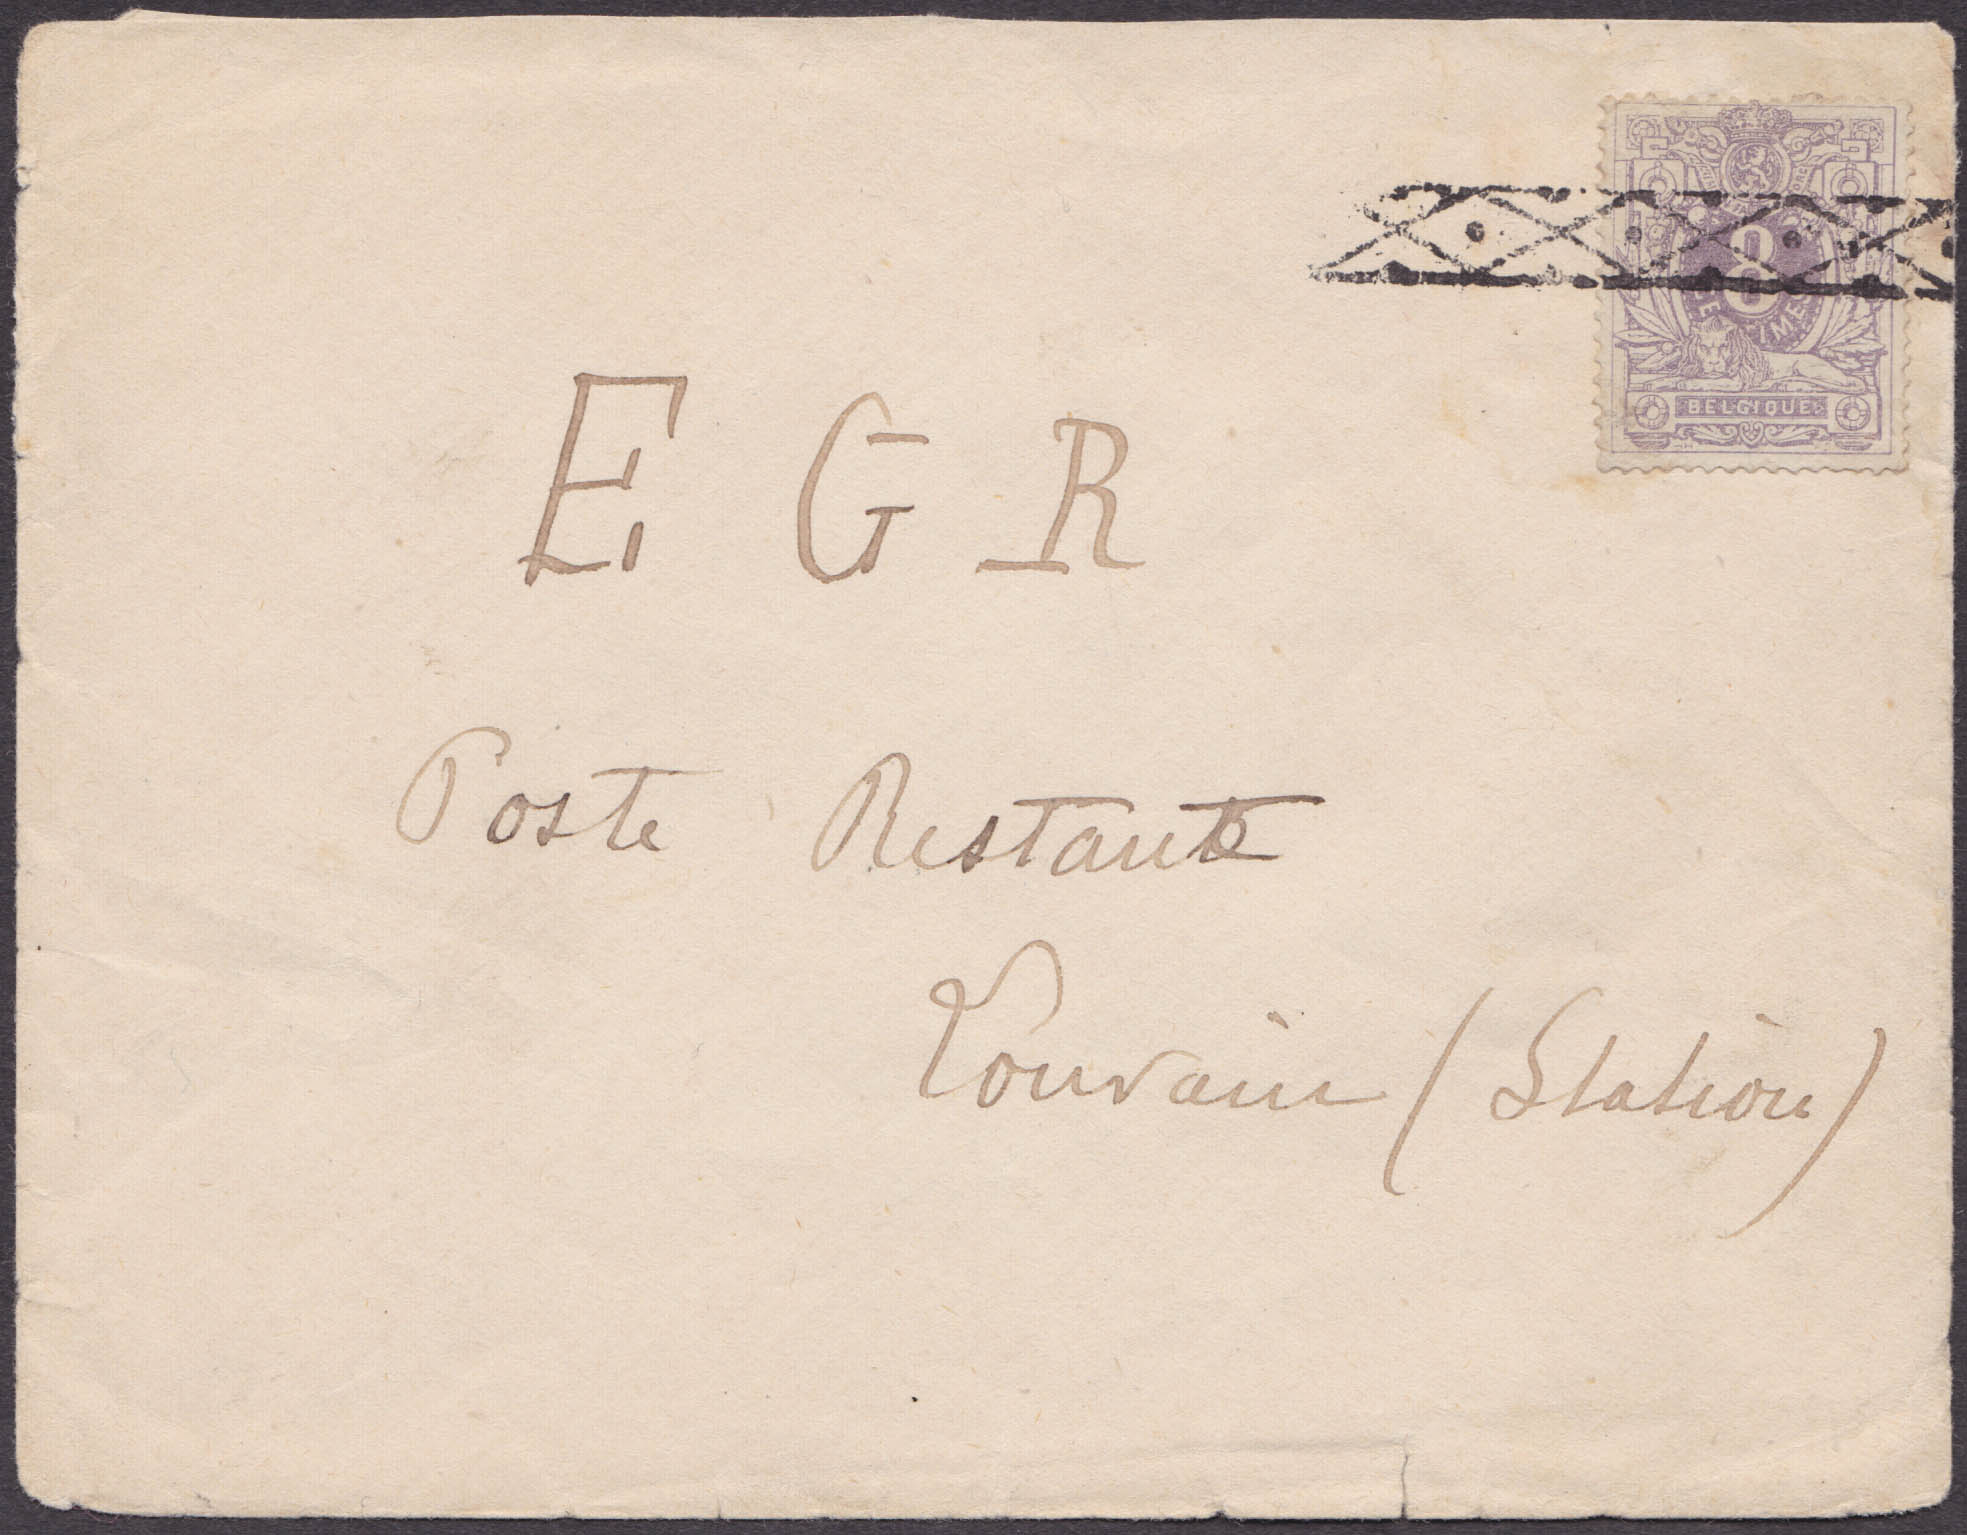 8
BELGIQUE
E G R
Poste Restante
Louvain (Station)